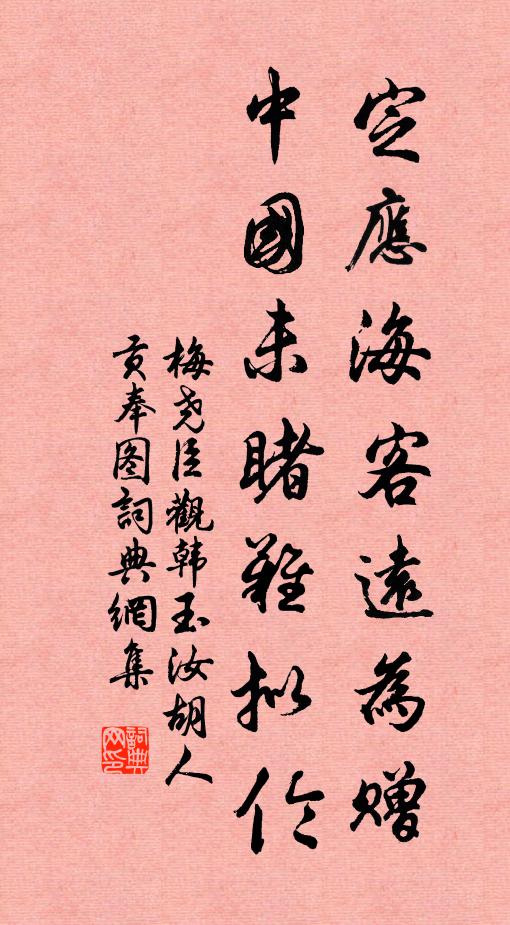 定應海客遠為赠
中國未睹難拟伦
梅尧臣觀韩玉汝胡人
贡奉图詞典網集
詞典
网印